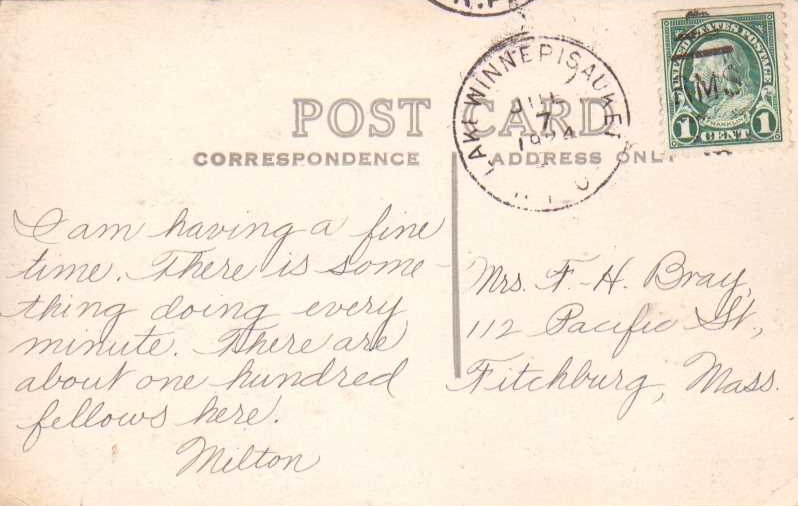 POST CARD
CORRESPONDENCE
ADDRESS ONLY
LAKE WINNEPISAUKEE
JUL
7
1924
R.P.O.
RMS
UNITED STATES POSTAGE
FRANKLIN
1 CENT 1
I am having a fine
time. There is some-
thing doing every
minute. There are
about one hundred
fellows here.
Milton
Mrs. F. H. Bray,
112 Pacific St.,
Fitchburg, Mass.